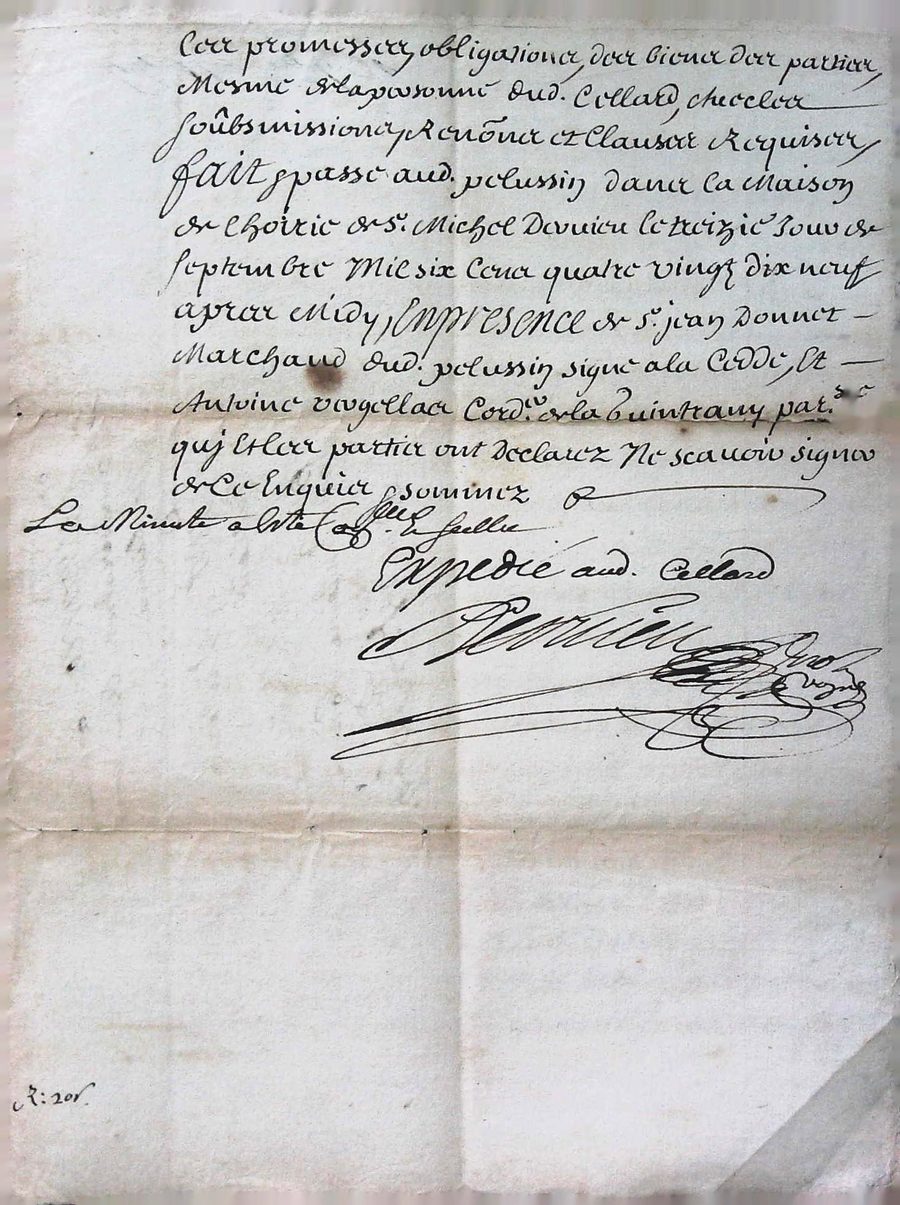 Ces promesses, obligations, des biens des parties,
Mesme de la personne dud. Cellard, avec les
soûbsmissions, Renõns et Clauses Requises,
fait & passé aud. pelussin dans la Maison
de L'hoirie de Sr. Michel Dervieu le treizie Jour de
septembre Mil six Cens quatre vingt dix neuf
apres Midy, En presence de Sr. jean Donnet
Marchand dud. pelussin signé a la Cedde, Et
Antoine vergellas Cordr. de la parsse
quj Et les parties ont Declarez Ne scavoir signer
de Ce Enquis & sommez
La Minute a esté Coolle. & scellée
Expedié aud. Cellard
Dervieu
R: 20s.